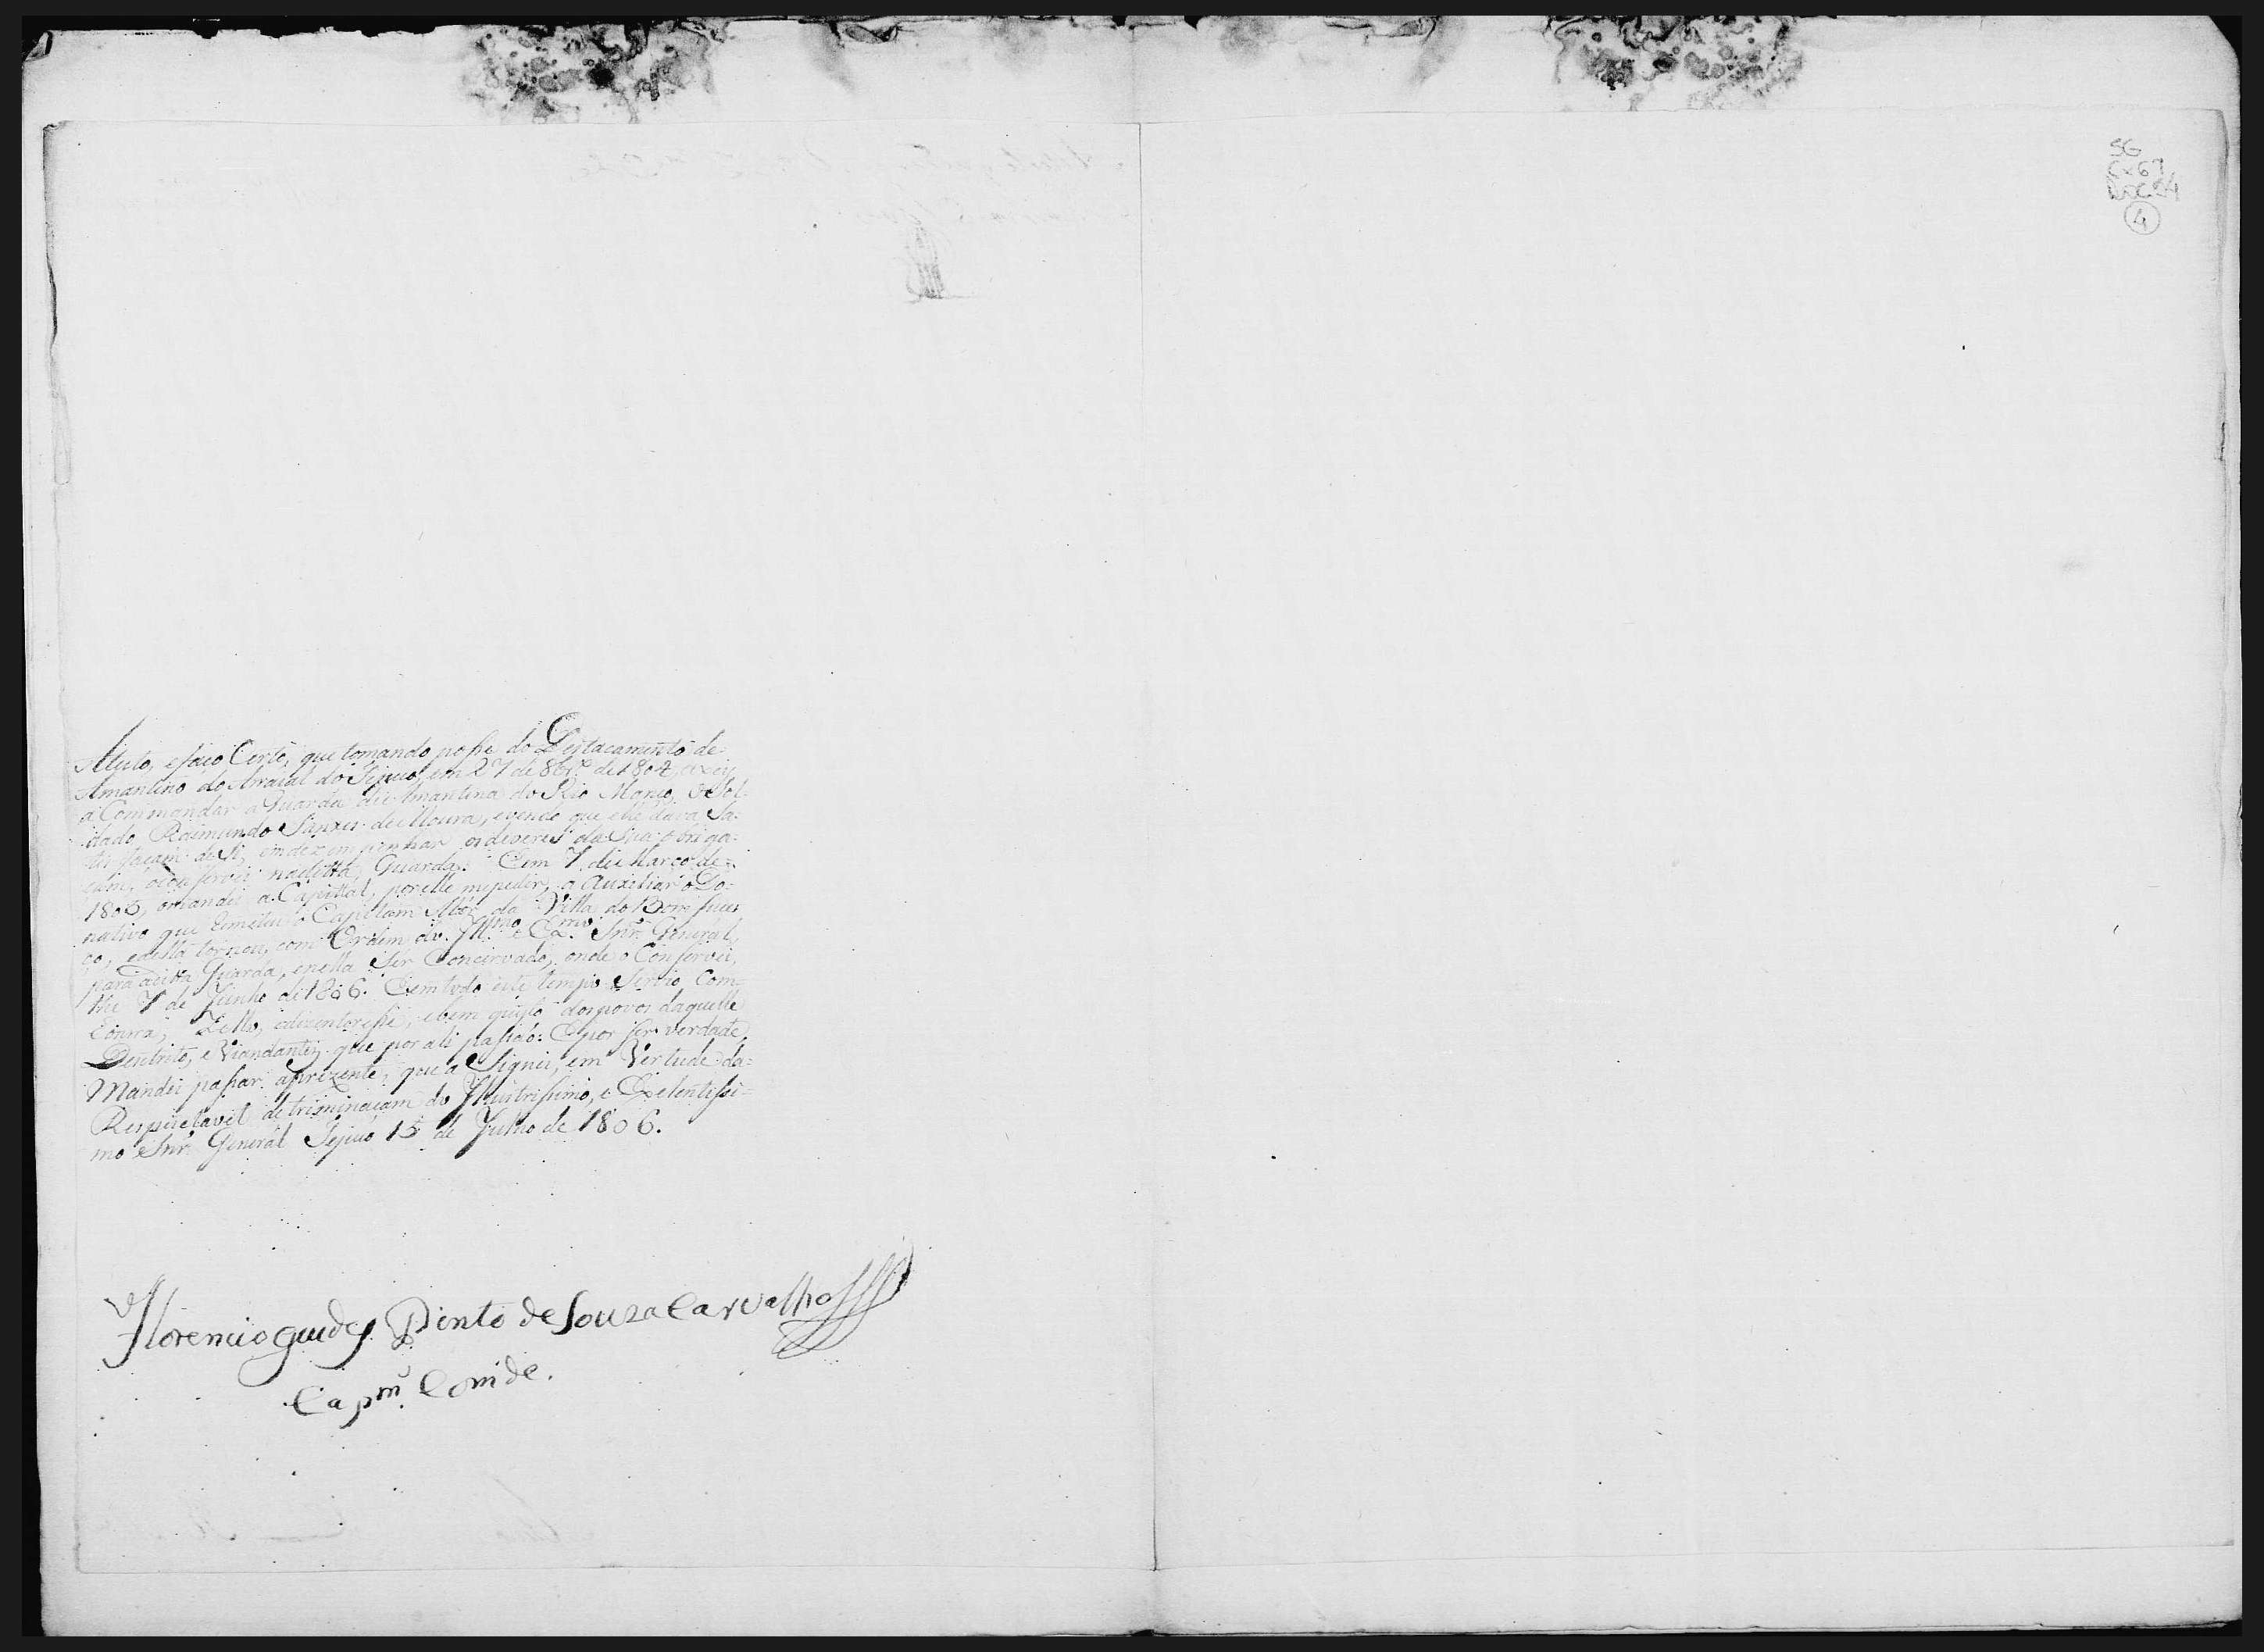 SG
Cx 67
DOC. 24
4
Atesto, e faço Certo, que tomando posse do Destacamento de-
Amantino do Arraial do Tejuco em 27 de 8br.o de 1804, axey
a Commandar a Guarda diê Amantina do Rio Manço, o Sol-
dado Raimundo Sanxes de Moura, e vendo que elle dava Sa-
tesfaçam de Si, em dezempenhar os deveres da Sua obriga-
çam, o Conservei na ditta Guarda: Em 7 de Março de
1805, o mandei a Capittal, por elle me pedir, a Auxiliar o Do-
nativo que Remeteu o Capitam Mór da Villa do Bom Suces
ço, e della tornou, com Ordem do Ill.mo e Ex.mo Snr. General,
para aditta Guarda, e nella Ser Concervado, onde o Conservei,
the 7 de Junho de 1806. E em todo este tempo Servio Com
Eonrra, Zello, e dizenteresse, e bem quisto dos povos daquelle
Destrito, e Viandantes que por ali passão: E por ser verdade,
Mandei passar aprezente, que a Signei, em Vertude da-
Respeietavel detriminaçam do Illustrissimo, e Exelentissi-
mo Snr. General Tejuco 15 de Julho de 1806.
Florencio Guides Pinto de Souza Carvalho
Cap.m Comde.